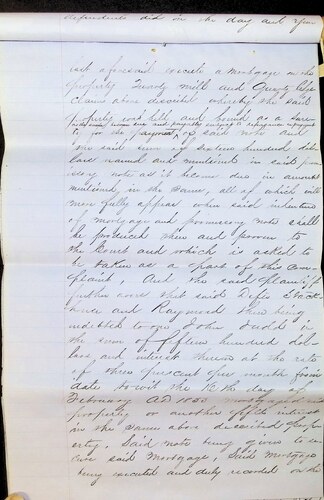 dependents did on the day and year
last aforesaid execute a mortgage on the
property Quartz Mill and Quartz
Claims above described whereby the said
property was held and bound as a secu
of said note and
the said sum of sixteen hundred dol
lars named and mentioned in said promis
sory note as it became due in amount
mentioned in the same, all of which will
more fully appear when said indenture
of mortgage and promissory note shall
be produced then and proven to
the Court and which is asked to
be taken as a part of this com
plaint, And the said plaintiff
further avers that said Defts
and Raymond then being
indebted to one John Judd in
the sum of fifteen hundred dol
lars, and interest thereon at the rate
of three per cent per month from
date towit the 12 th day of
February AD 1853 mortgaged
property or another fifth interest
in the same above described prop
erty, Said note being given to se
cure said Mortgage, Said Mortgage
being executed and duly recorded on the